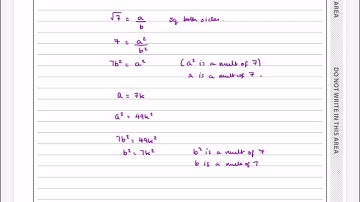 √7 = a/b sq both sides.
7 = a²/b²
7b² = a² (a² is a mult of 7)
a is a mult of 7.
a = 7k
a² = 49k²
7b² = 49k²
b² = 7k² b² is a mult of 7
b is a mult of 7
AREA
DO NOT WRITE IN THIS AREA